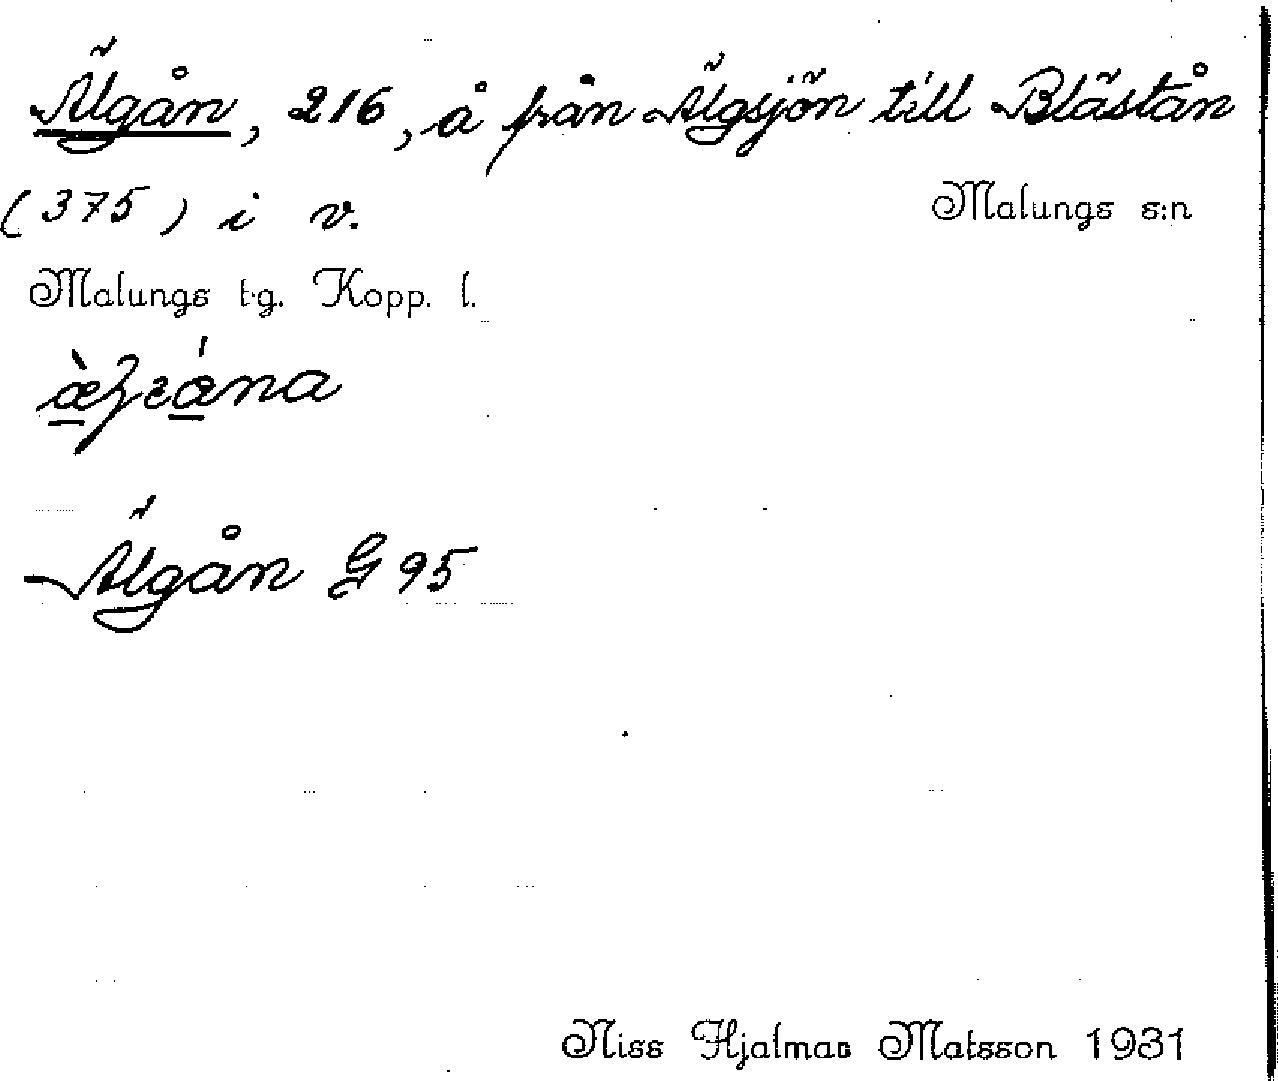 Älgån, 216, å från Älgsjön till Blästån
(375) i v.
Malungs s:n
Malungs tg. Kopp. l.
Älgån G 95
Niss Hjalmar Matsson 1931